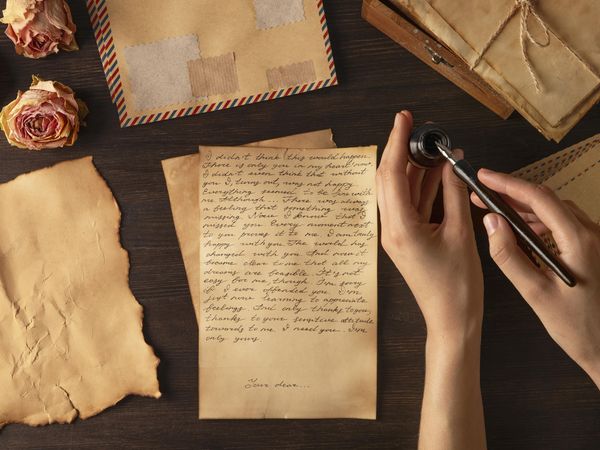 I didn't think this would happen.
There is only you in my heart now.
I didn't even think that without
you I, turns out, was not happy
Everything seemed to be fine with
me Although... There was always
a feeling that something was
missing Now I know that I
missed you Every moment next
to you proves it to me. I am truly
happy with you. The world has
changed with you And now it
became clear to me that all my
dreams are feasible. It's not
easy for me though. I'm sorry
if I ever offended you. I'm
just now learning to appreciate
feelings. And only thanks to you,
thanks to your sensitive attitude
towards to me. I need you. I'm
only yours
Your dear...